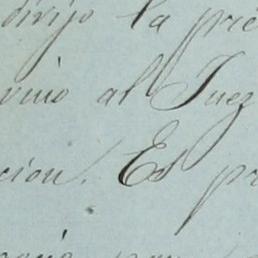 dirijo la pre
vino al Juez
cion. Es pr